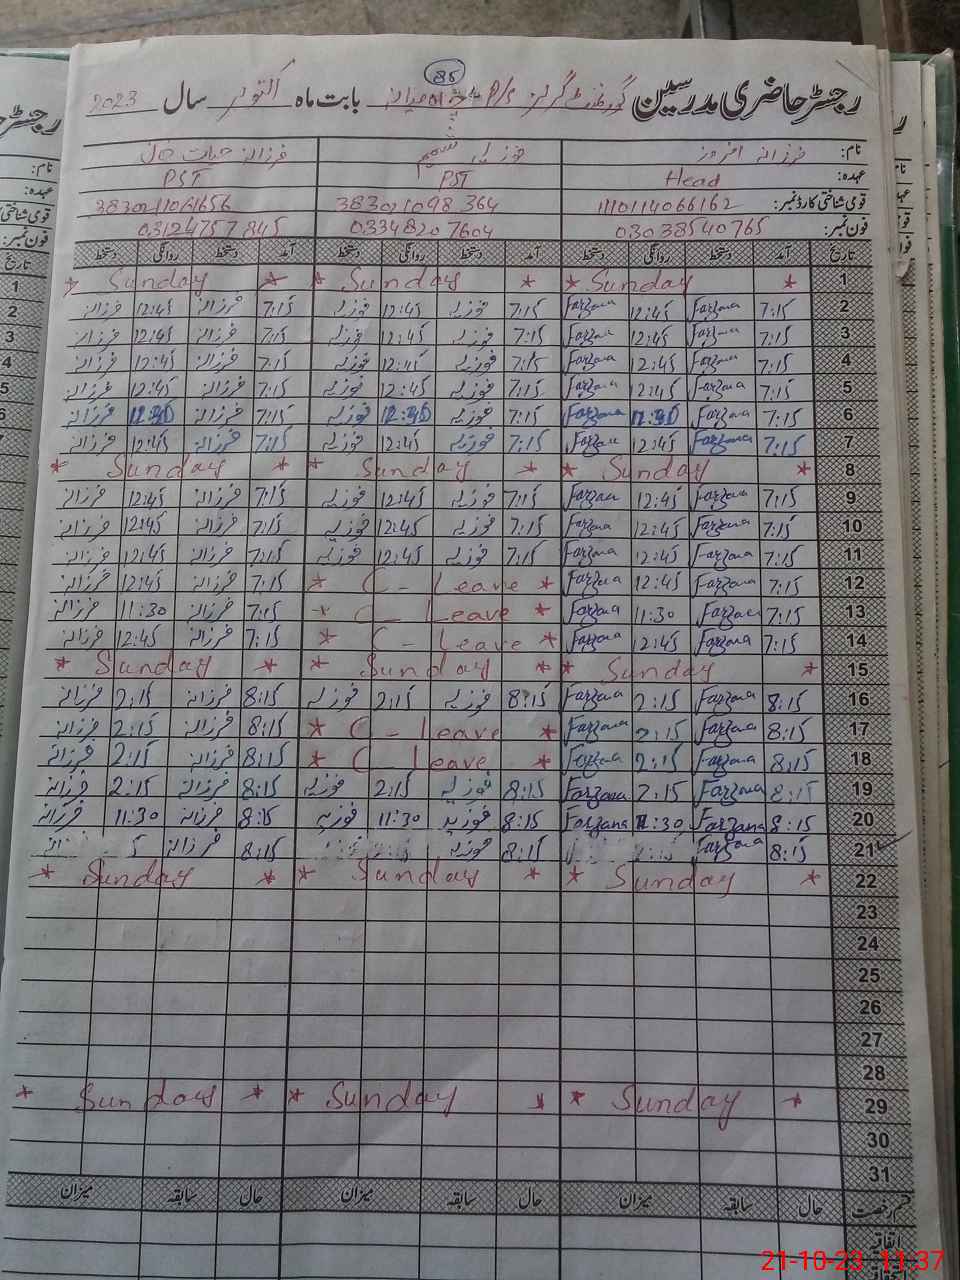 85
رجسٹر حاضری مدرسین گورنمنٹ گرلز P/S بابت ماہ اکتوبر سال 2023
نام: فرزانہ افروز فوزیہ شمیم فرزانہ حیات
عہدہ: Head PST PST
قومی شناختی کارڈ نمبر: 1110114066162 383021098364
فون نمبر: 03038540765 03348207604 03124757845
تاریخ آمد دستخط روانگی دستخط آمد دستخط روانگی دستخط آمد دستخط روانگی دستخط
1 * Sunday * * Sunday * * Sunday *
2 7:15 Farzana 12:45 Farzana 7:15 فوزیہ 12:45 فوزیہ 7:15 فرزانہ 12:45 فرزانہ
3 7:15 Farzana 12:45 Farzana 7:15 فوزیہ 12:45 فوزیہ 7:15 فرزانہ 12:45 فرزانہ
4 7:15 Farzana 12:45 Farzana 7:15 فوزیہ 12:45 فوزیہ 7:15 فرزانہ 12:45 فرزانہ
5 7:15 Farzana 12:45 Farzana 7:15 فوزیہ 12:45 فوزیہ 7:15 فرزانہ 12:45 فرزانہ
6 7:15 Farzana Farzana 7:15 فوزیہ فوزیہ 7:15 فرزانہ فرزانہ
7 7:15 Farzana 12:45 Farzana 7:15 فوزیہ 12:45 فوزیہ 7:15 فرزانہ 12:45 فرزانہ
8 * Sunday * * Sunday * * Sunday *
9 7:15 Farzana 12:45 Farzana 7:15 فوزیہ 12:45 فوزیہ 7:15 فرزانہ 12:45 فرزانہ
10 7:15 Farzana 12:45 Farzana 7:15 فوزیہ 12:45 فوزیہ 7:15 فرزانہ 12:45 فرزانہ
11 7:15 Farzana 12:45 Farzana 7:15 فوزیہ 12:45 فوزیہ 7:15 فرزانہ 12:45 فرزانہ
12 7:15 Farzana 12:45 Farzana * C - Leave * 7:15 فرزانہ 12:45 فرزانہ
13 7:15 Farzana 11:30 Farzana * C - Leave * 7:15 فرزانہ 11:30 فرزانہ
14 7:15 Farzana 12:45 Farzana * C - Leave * 7:15 فرزانہ 12:45 فرزانہ
15 * Sunday * * Sunday * * Sunday *
16 8:15 Farzana 2:15 Farzana 8:15 فوزیہ 2:15 فوزیہ 8:15 فرزانہ 2:15 فرزانہ
17 8:15 Farzana 2:15 Farzana * C - Leave * 8:15 فرزانہ 2:15 فرزانہ
18 8:15 Farzana 2:15 Farzana * C - Leave * 8:15 فرزانہ 2:15 فرزانہ
19 8:15 Farzana 2:15 Farzana 8:15 فوزیہ 2:15 فوزیہ 8:15 فرزانہ 2:15 فرزانہ
20 8:15 Farzana 11:30 Farzana 8:15 فوزیہ 11:30 فوزیہ 8:15 فرزانہ 11:30 فرزانہ
21 8:15 Farzana 8:15 فوزیہ 8:15 فرزانہ
22 * Sunday * * Sunday * * Sunday *
23
24
25
26
27
28
29 * Sunday * * Sunday * * Sunday *
30
31
قسم رخصت حال سابقہ میزان حال سابقہ میزان حال سابقہ میزان
اتفاقیہ
21-10-23 11:37